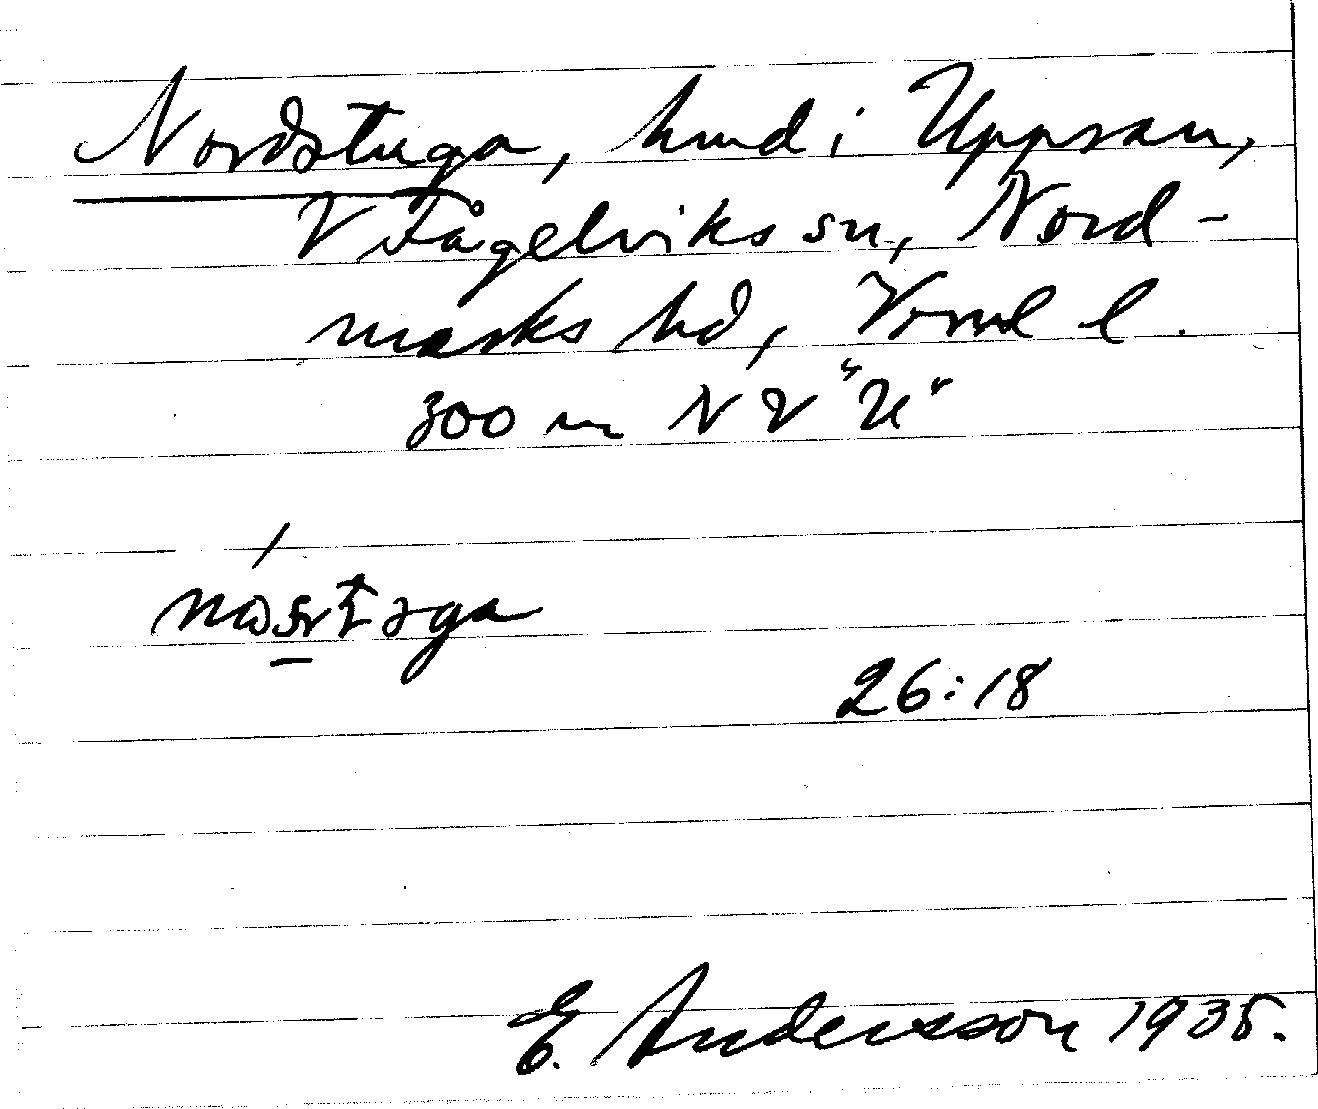 Nordstuga, hmd i Uppsan,
V Fågelviks sn, Nord-
marks hd, Vrml l.
300 m NV "U"
26:18
E. Andersson 1935.